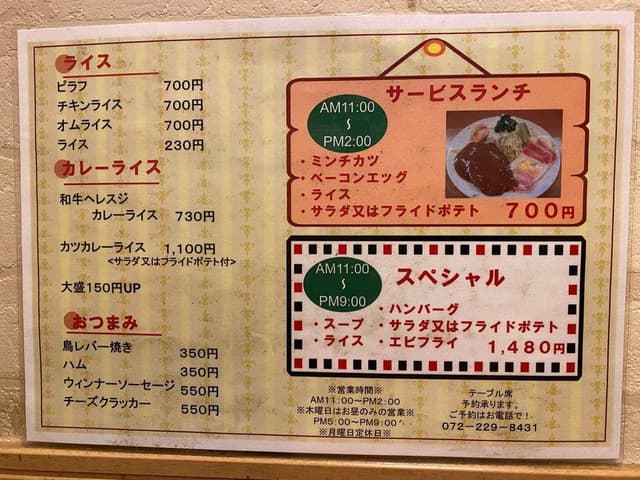 ライス
ピラフ 700円
チキンライス 700円
オムライス 700円
ライス 230円
カレーライス
和牛ヘレスジ
カレーライス 730円
カツカレーライス 1,100円
<サラダ又はフライドポテト付>
大盛150円UP
おつまみ
鳥レバー焼き 350円
ハム 350円
ウィンナーソーセージ 550円
チーズクラッカー 550円
サービスランチ
AM11:00
～
PM2:00
・ミンチカツ
・ベーコンエッグ
・ライス
・サラダ又はフライドポテト 700円
スペシャル
AM11:00
～
PM9:00
・ハンバーグ
・スープ ・サラダ又はフライドポテト
・ライス ・エビフライ 1,480円
※営業時間※
AM11:00〜PM2:00
※木曜日はお昼のみの営業※
PM5:00〜PM9:00
※月曜日定休日※
テーブル席
予約承ります。
ご予約はお電話で!
072-229-8431